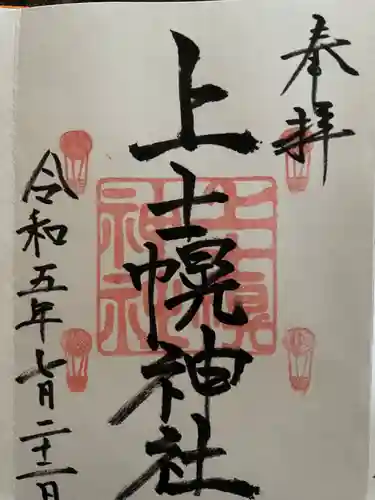 奉拝
上士幌神社
上士幌神社
令和五年七月二十二日